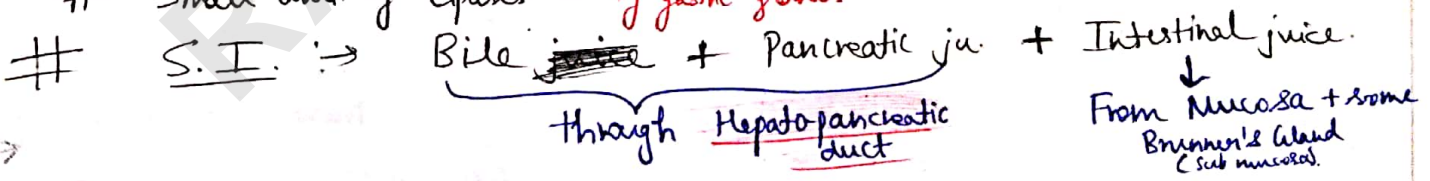 of gastric gland.
# S.I. :→ Bile + Pancreatic ju. + Intestinal juice.
through Hepato-pancreatic duct
↓
From Mucosa + some
Brunner's Gland
(sub mucosa).